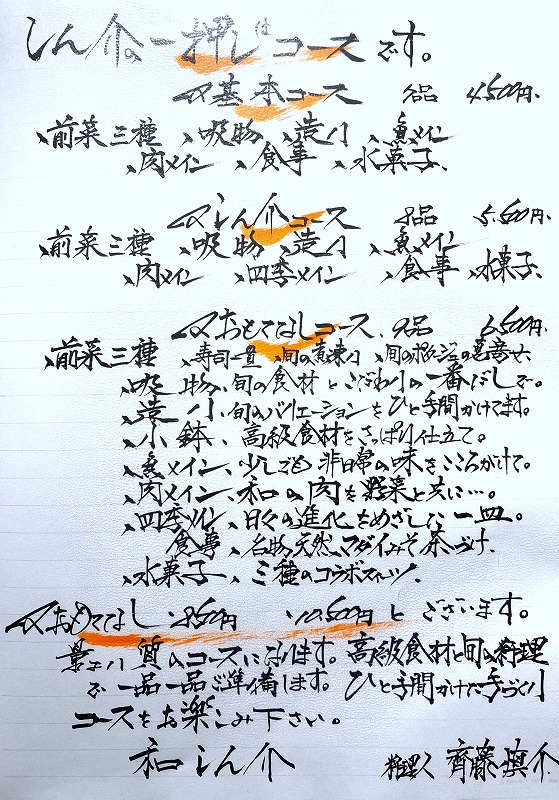 しん介の一押しはコースです。
基本コース 7品 4.500円
、前菜三種 、吸物 、造り 、魚メイン
、肉メイン 、食事 、水菓子、
しん介コース 8品 5.500円
、前菜三種 、吸物 、造り 、魚メイン
、肉メイン 、四季メイン 、食事 、水菓子、
おもてなしコース、9品 6.500円
、前菜三種 、寿司一貫 、旬の煮凍り 、旬のポタージュの
、吸物、旬の食材とこだわりの一番だしで。
、造り、旬のバリエーションをひと手間かけてます。
、小鉢、高級食材をさっぱり仕立て。
、魚メイン、少しでも非日常の味をこころがけて。
、肉メイン、和の肉を野菜と共に…。
、四季メイン、日々の進化をめざした一皿。
食事、名物天然マダイみそ茶づけ、
、水菓子、三種のコラボスイーツ、
おもてなし、8.500円 、10.500円とございます。
質のコースになります。高級食材と旬の料理
で一品一品ご準備します。ひと手間かけた手づくり
コースをお楽しみ下さい。
和しん介 料理人 齊藤慎介